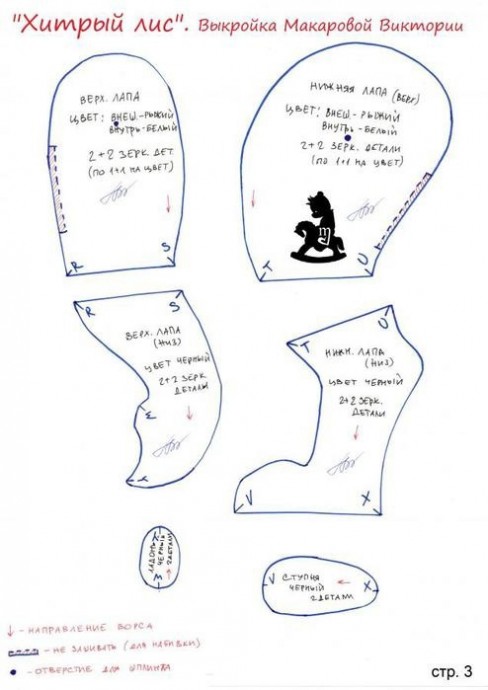 "Хитрый лис". Выкройка Макаровой Виктории
ВЕРХ. ЛАПА
ЦВЕТ: ВНЕШ.-РЫЖИЙ
ВНУТРЬ-БЕЛЫЙ
2+2 ЗЕРК. ДЕТ.
(ПО 1+1 НА ЦВЕТ)
R
S
НИЖНЯЯ ЛАПА (ВЕРХ)
ЦВЕТ: ВНЕШ-РЫЖИЙ
ВНУТРЬ-БЕЛЫЙ
2+2 ЗЕРК. ДЕТАЛИ
(ПО 1+1 НА ЦВЕТ)
T
U
R
S
ВЕРХ. ЛАПА
(НИЗ)
ЦВЕТ ЧЕРНЫЙ
2+2 ЗЕРК.
ДЕТАЛИ
T
U
НИЖН. ЛАПА
(НИЗ)
ЦВЕТ ЧЕРНЫЙ
2+2 ЗЕРК.
ДЕТАЛИ
V
X
ЛАДОНЬ
ЧЕРНЫЙ
2 ДЕТАЛИ
V
СТУПНЯ
ЧЕРНЫЙ
2 ДЕТАЛИ
X
- НАПРАВЛЕНИЕ ВОРСА
- НЕ ЗАШИВАТЬ (ДЛЯ НАБИВКИ)
- ОТВЕРСТИЕ ДЛЯ ШПЛИНТА
стр. 3